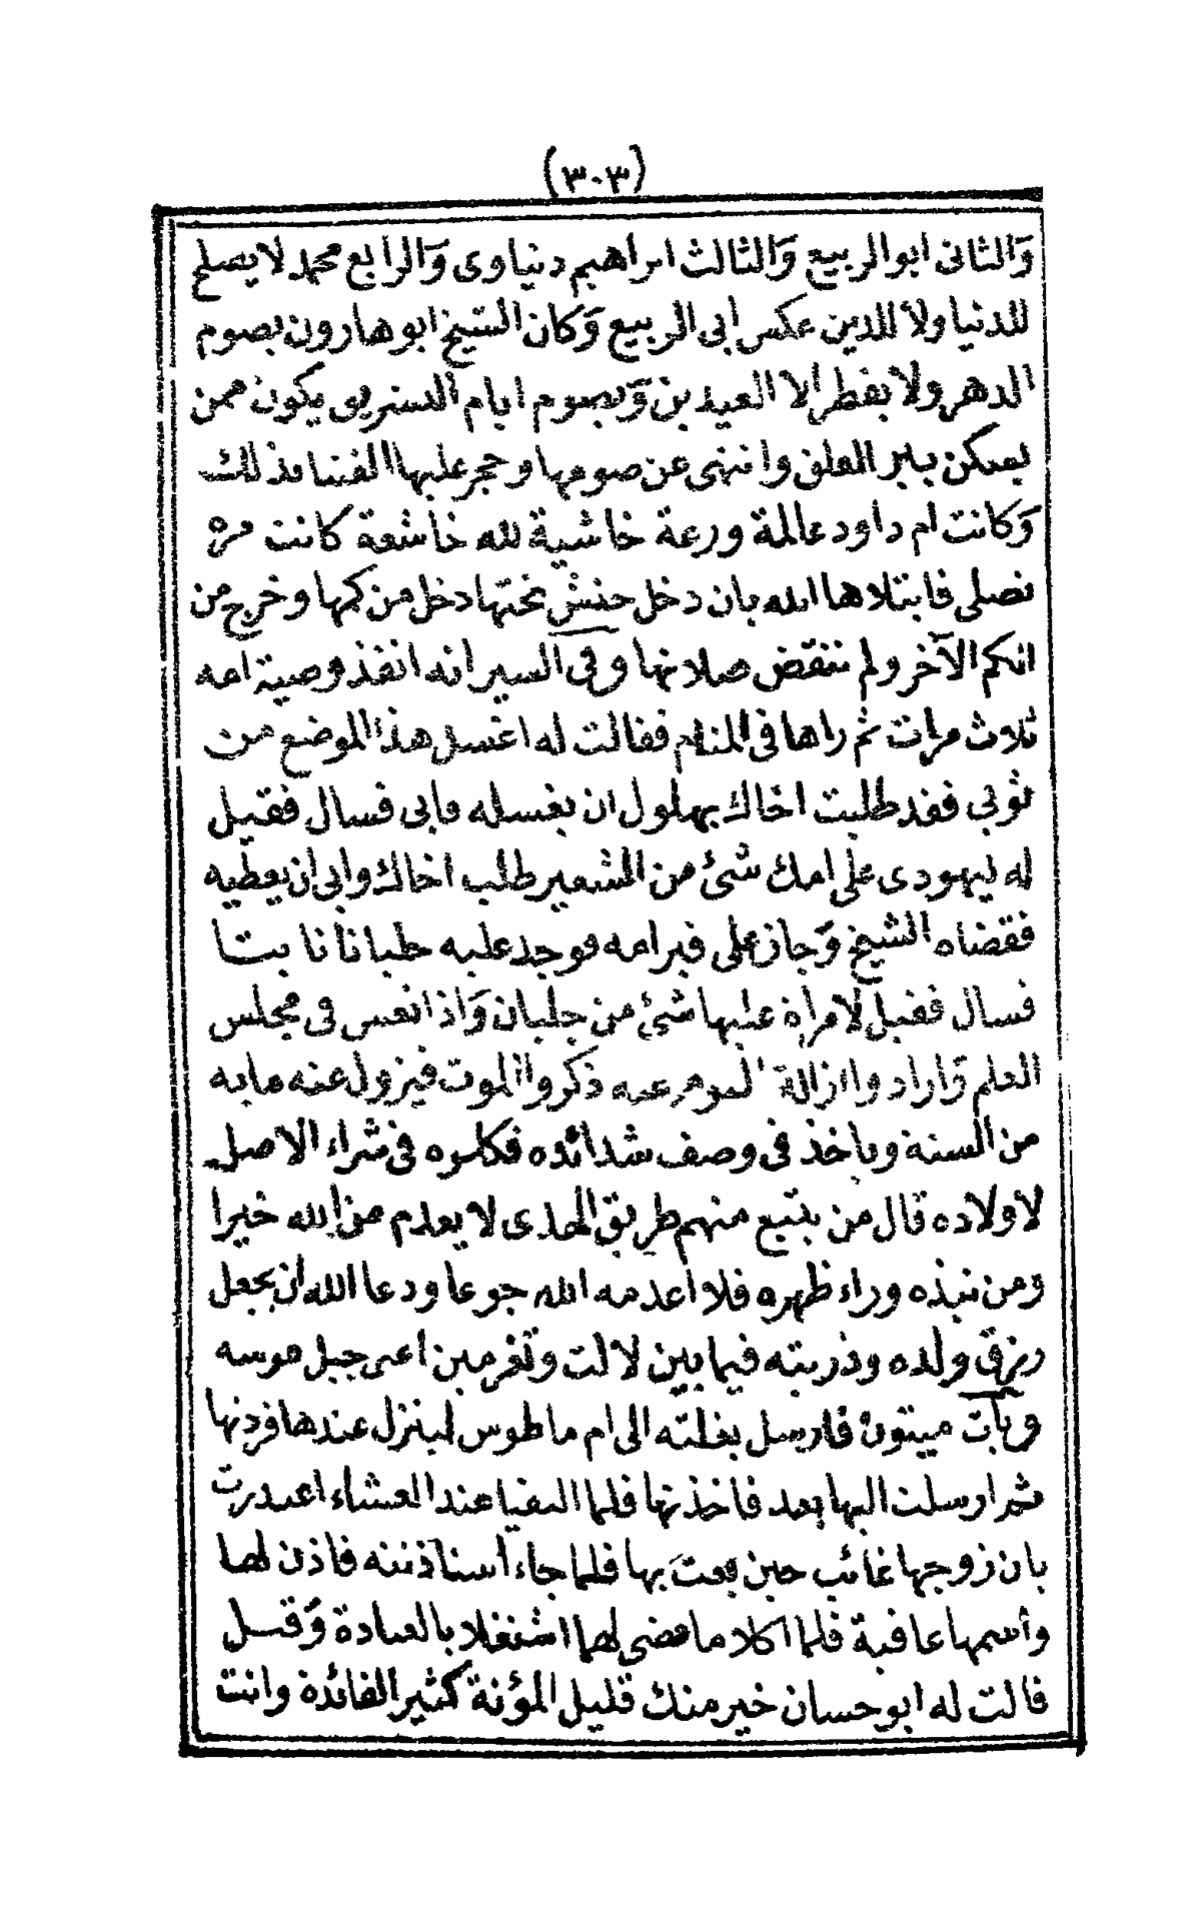 (٣٠٣)
وَالثانى ابوالربيع وَالثالث ابراهيم دنياوى وَالرابع محمد لا يصلح
للدنيا ولا للدين عكس ابى الربيع وَكان الشيخ ابو هارون يصوم
الدهر ولا يفطر الا العيدين وَيصوم ايام التشريق يكون ممن
يمكن ببئر العلق وانتهى عن صومها وحجر عليها الفتيا بذلك
وَكانت ام داود عالمة ورعة خاشية لله خاشعة كانت مرة
تصلى فابتلاها الله بان دخل حنش تحتها دخل من كمها وخرج من
الكم الآخر ولم تنقض صلاتها وفى السير انه انفذ وصية امه
ثلاث مرات ثم راها فى المنام فقالت له اغسل هذا الموضع من
ثوبى فقد طلبت اخاك بهلول ان يغسله فابى فسال فقيل
له ليهودى على امك شئ من الشعير طلب اخاك وابى ان يعطيه
فقضاه الشيخ وَجاز على قبر امه فوجد عليه جلبانا نابتا
فسال فقيل لامرأة عليها شئ من جلبان وَاذا نعس فى مجلس
العلم وَارادوا ازالة النوم عنه ذكروا الموت فيزول عنه ما به
من السنة وياخذ فى وصف شدائده فكلموه فى شراء الاصل
لاولاده قال من يتبع منهم طريق الهدى لا يعدم من الله خيرا
ومن نبذه وراء ظهره فلا اعدمه الله جوعا ودعا الله ان يجعل
رزق ولده وذريته فيما بين لالت وتغرمين اعنى جبل نفوسه
وبات ميتون فارسل بغلته الى ام ماطوس لينزل عندها فردتها
ثم ارسلت اليها بعد فاخذتها فلما التقيا عند العشاء اعتذرت
بان زوجها غائب حين بعث بها فلما جاء استاذنته فاذن لها
واسمها عافية فلما اكلا ما مضى لهما اشتغلا بالعبادة وَقيل
قالت له ابو حسان خير منك قليل المؤنة كثير الفائدة وانت